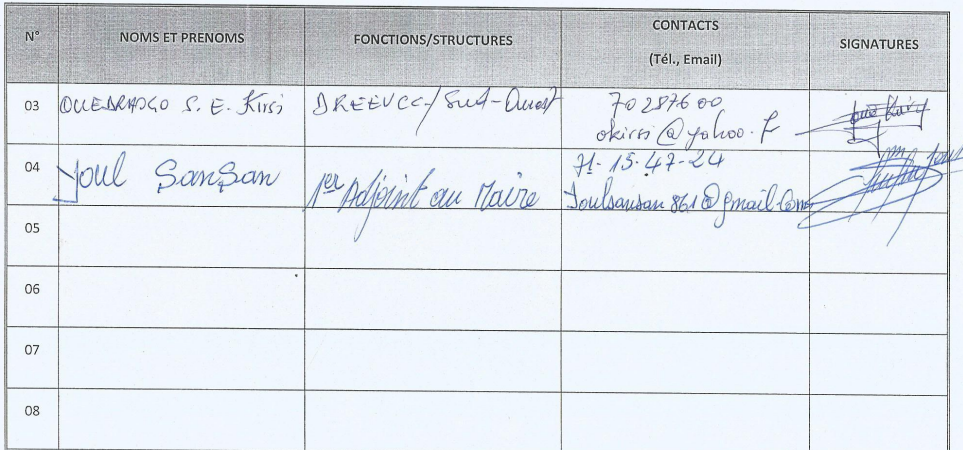 N° NOMS ET PRENOMS FONCTIONS/STRUCTURES CONTACTS
(Tél., Email) SIGNATURES
03 OUEDRAOGO S. E. Kirsi DREEVCC/Sud-Ouest 70287600
okirsi@yahoo.fr
04 Youl SanSan 1er Adjoint au Maire 71-15-47-24
Youlsansan861@gmail.com
05
06
07
08